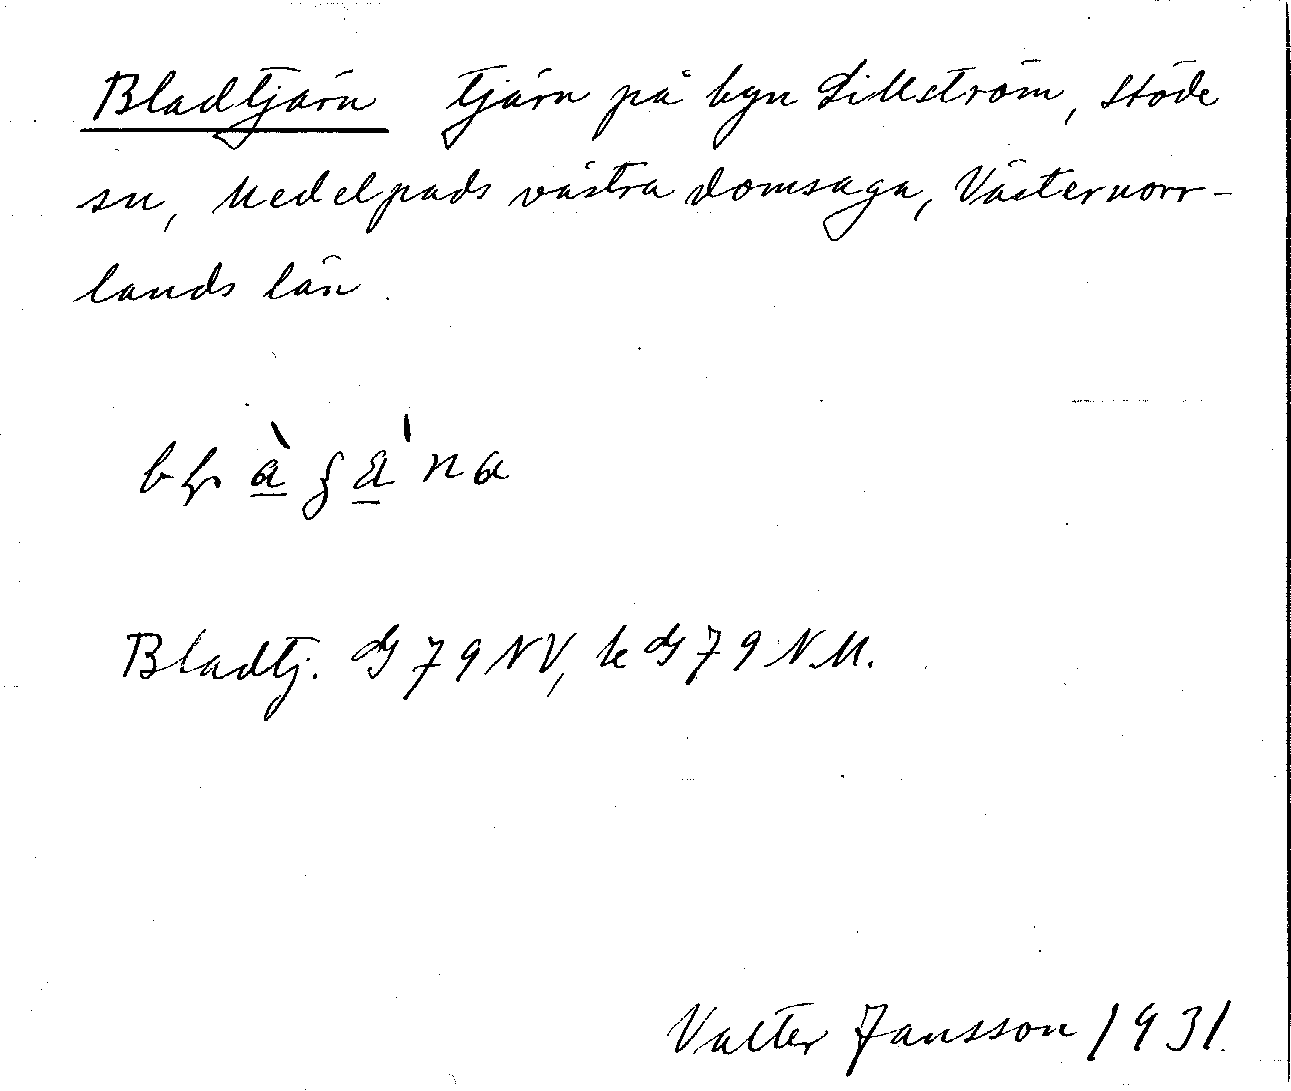 Bladtjärn tjärn på byn Lillström, Stöde
sn, Medelpads västra domsaga, Västernorr-
lands län.
Bladtj. G 79 NV, k G 79 N.M.
Valter Jansson 1931.